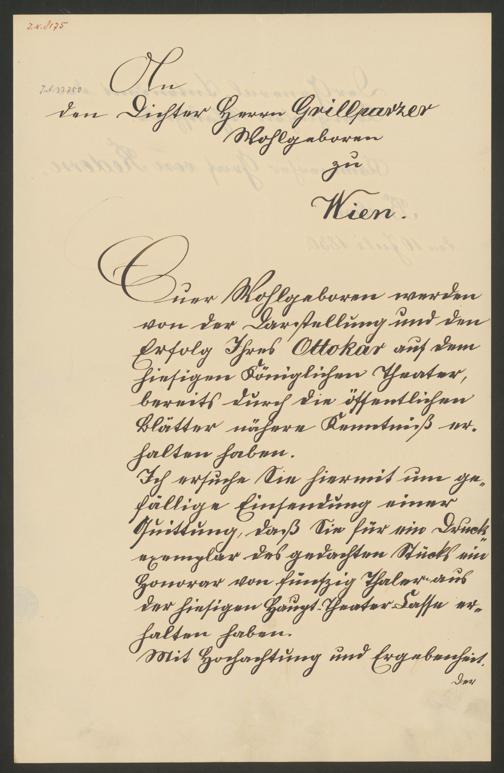 I.N. 8175
An
den Dichter Herrn Grillparzer
Wohlgeboren
zu
Wien.
Euer Wohlgeboren werden
von der Darstellung und den
Erfolg Ihres Ottokar auf dem
hiesigen Königlichen Theater,
bereits durch die öffentlichen
Blätter nähere Kenntniß er-
halten haben.
Ich ersuche Sie hiermit um ge-
fällige Einsendung einer
Quittung, daß Sie für ein Druck
exemplar des gedachten Stücks ein
Honorar von fünfzig Thaler aus
der hiesigen Haupt-Theater-Casse er-
halten haben.
Mit Hochachtung und Ergebenheit.
der